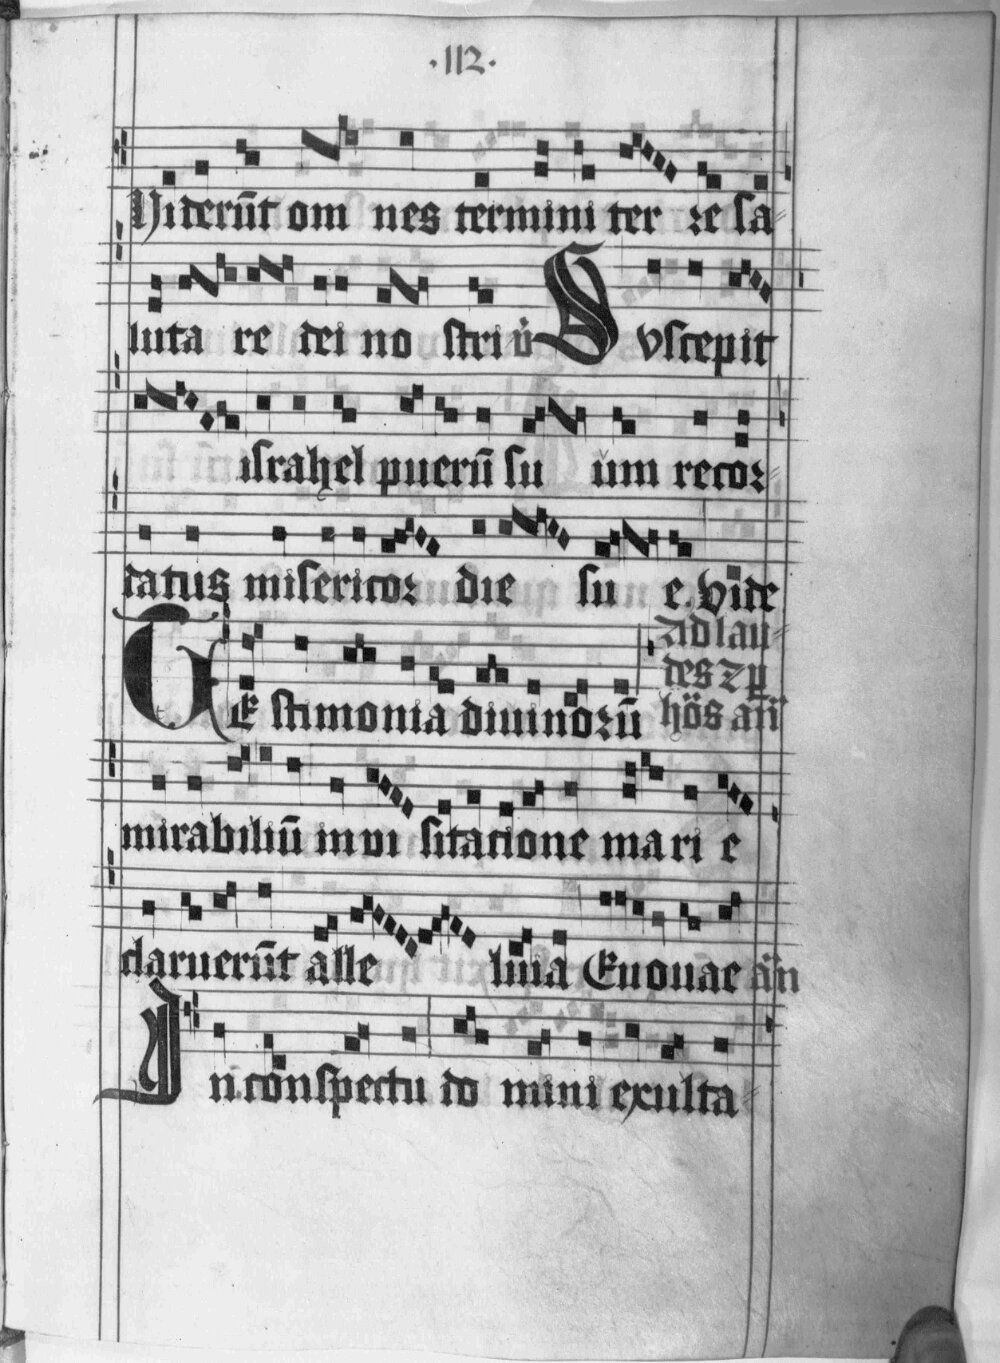 ·112·
Viderūt om nes termini ter re sa
luta re dei no stri v̇ Suscepit
israhel puerū su um recor
datus misericor die su e. Vide
TE stimonia diuinorū
Ad lau
des z p
hōs añ
mirabiliū in vi sitacione mari e
claruerūt alle luia Euouae añ
In conspectu do mini exulta